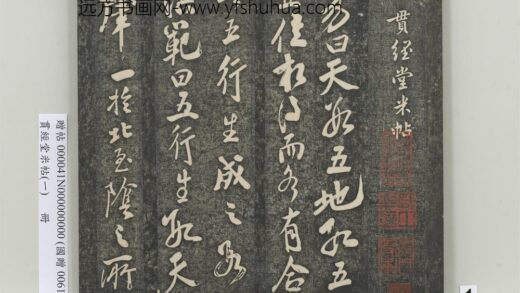 远方书画网 www.yfshuhua.com
貫經堂米帖
易曰天數五地數五
位相得而各有合
五行生成之數
範曰五行生數天
一於北至陰之所
贈帖 000041N000000000 (國贈 0061
貫經堂米帖(一) 冊